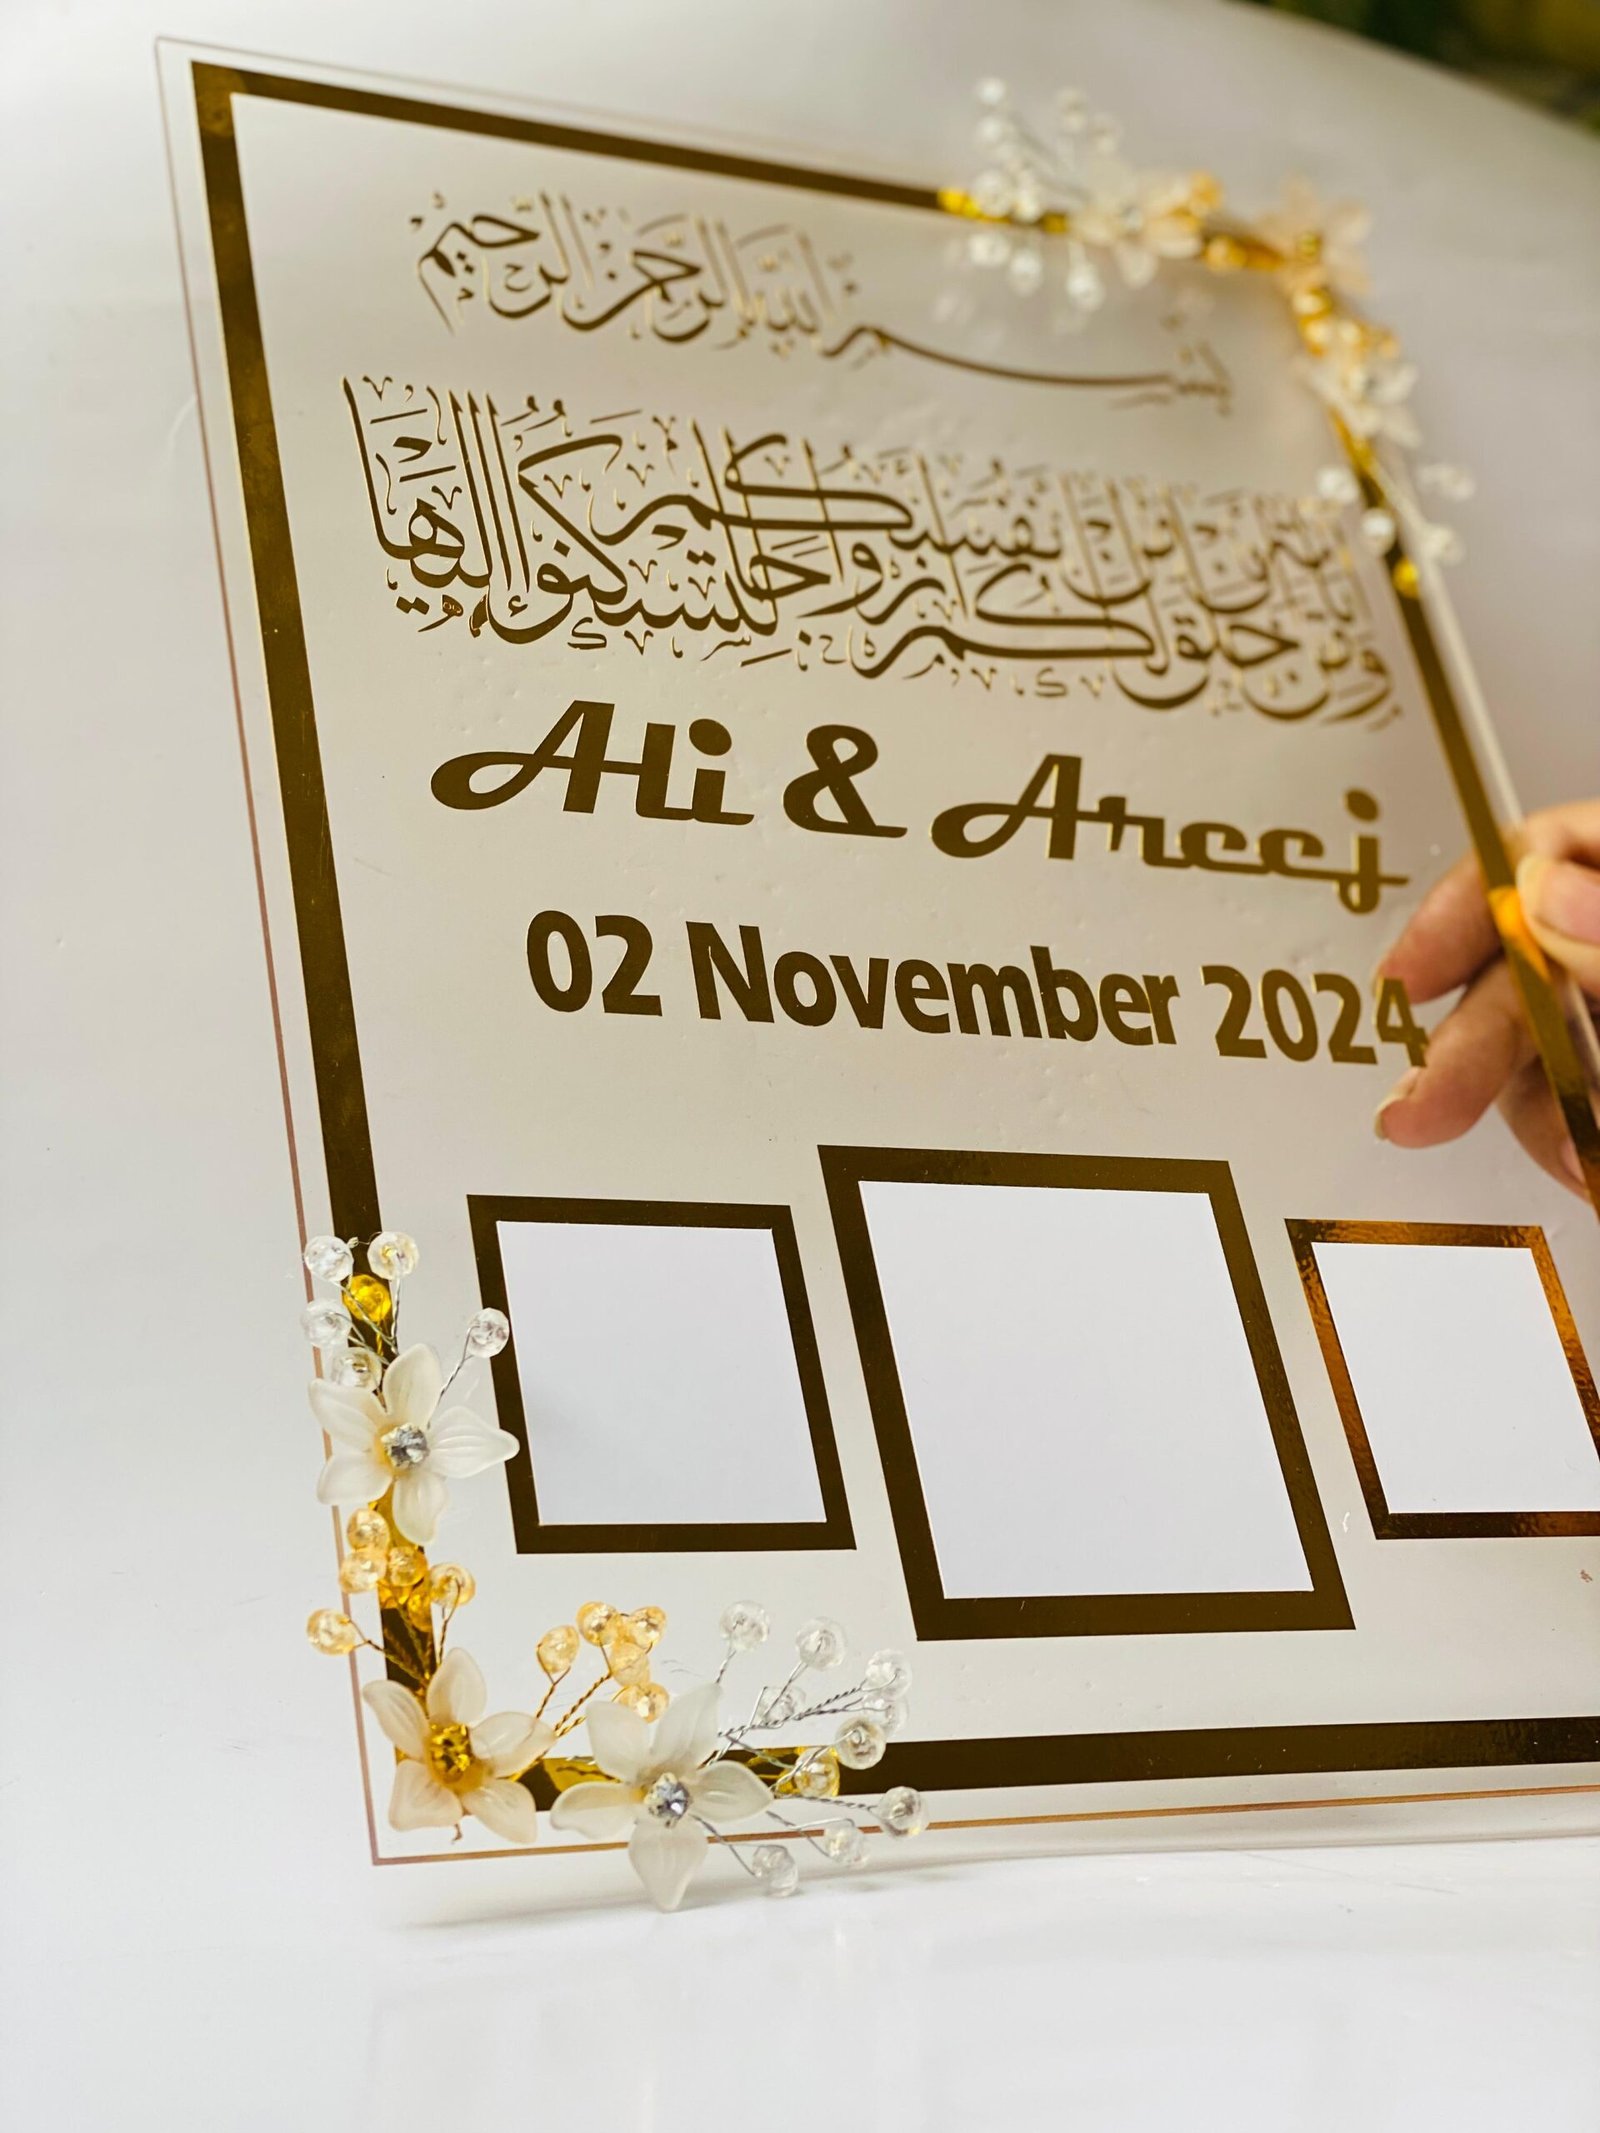 بِسْمِ اللهِ الرَّحْمٰنِ الرَّحِيْمِ
وَمِنْ اٰيَاتِهٖ اَنْ خَلَقَ لَكُمْ مِنْ اَنْفُسِكُمْ اَزْوَاجًا لِتَسْكُنُوْا اِلَيْهَا
Ali & Areej
02 November 2024